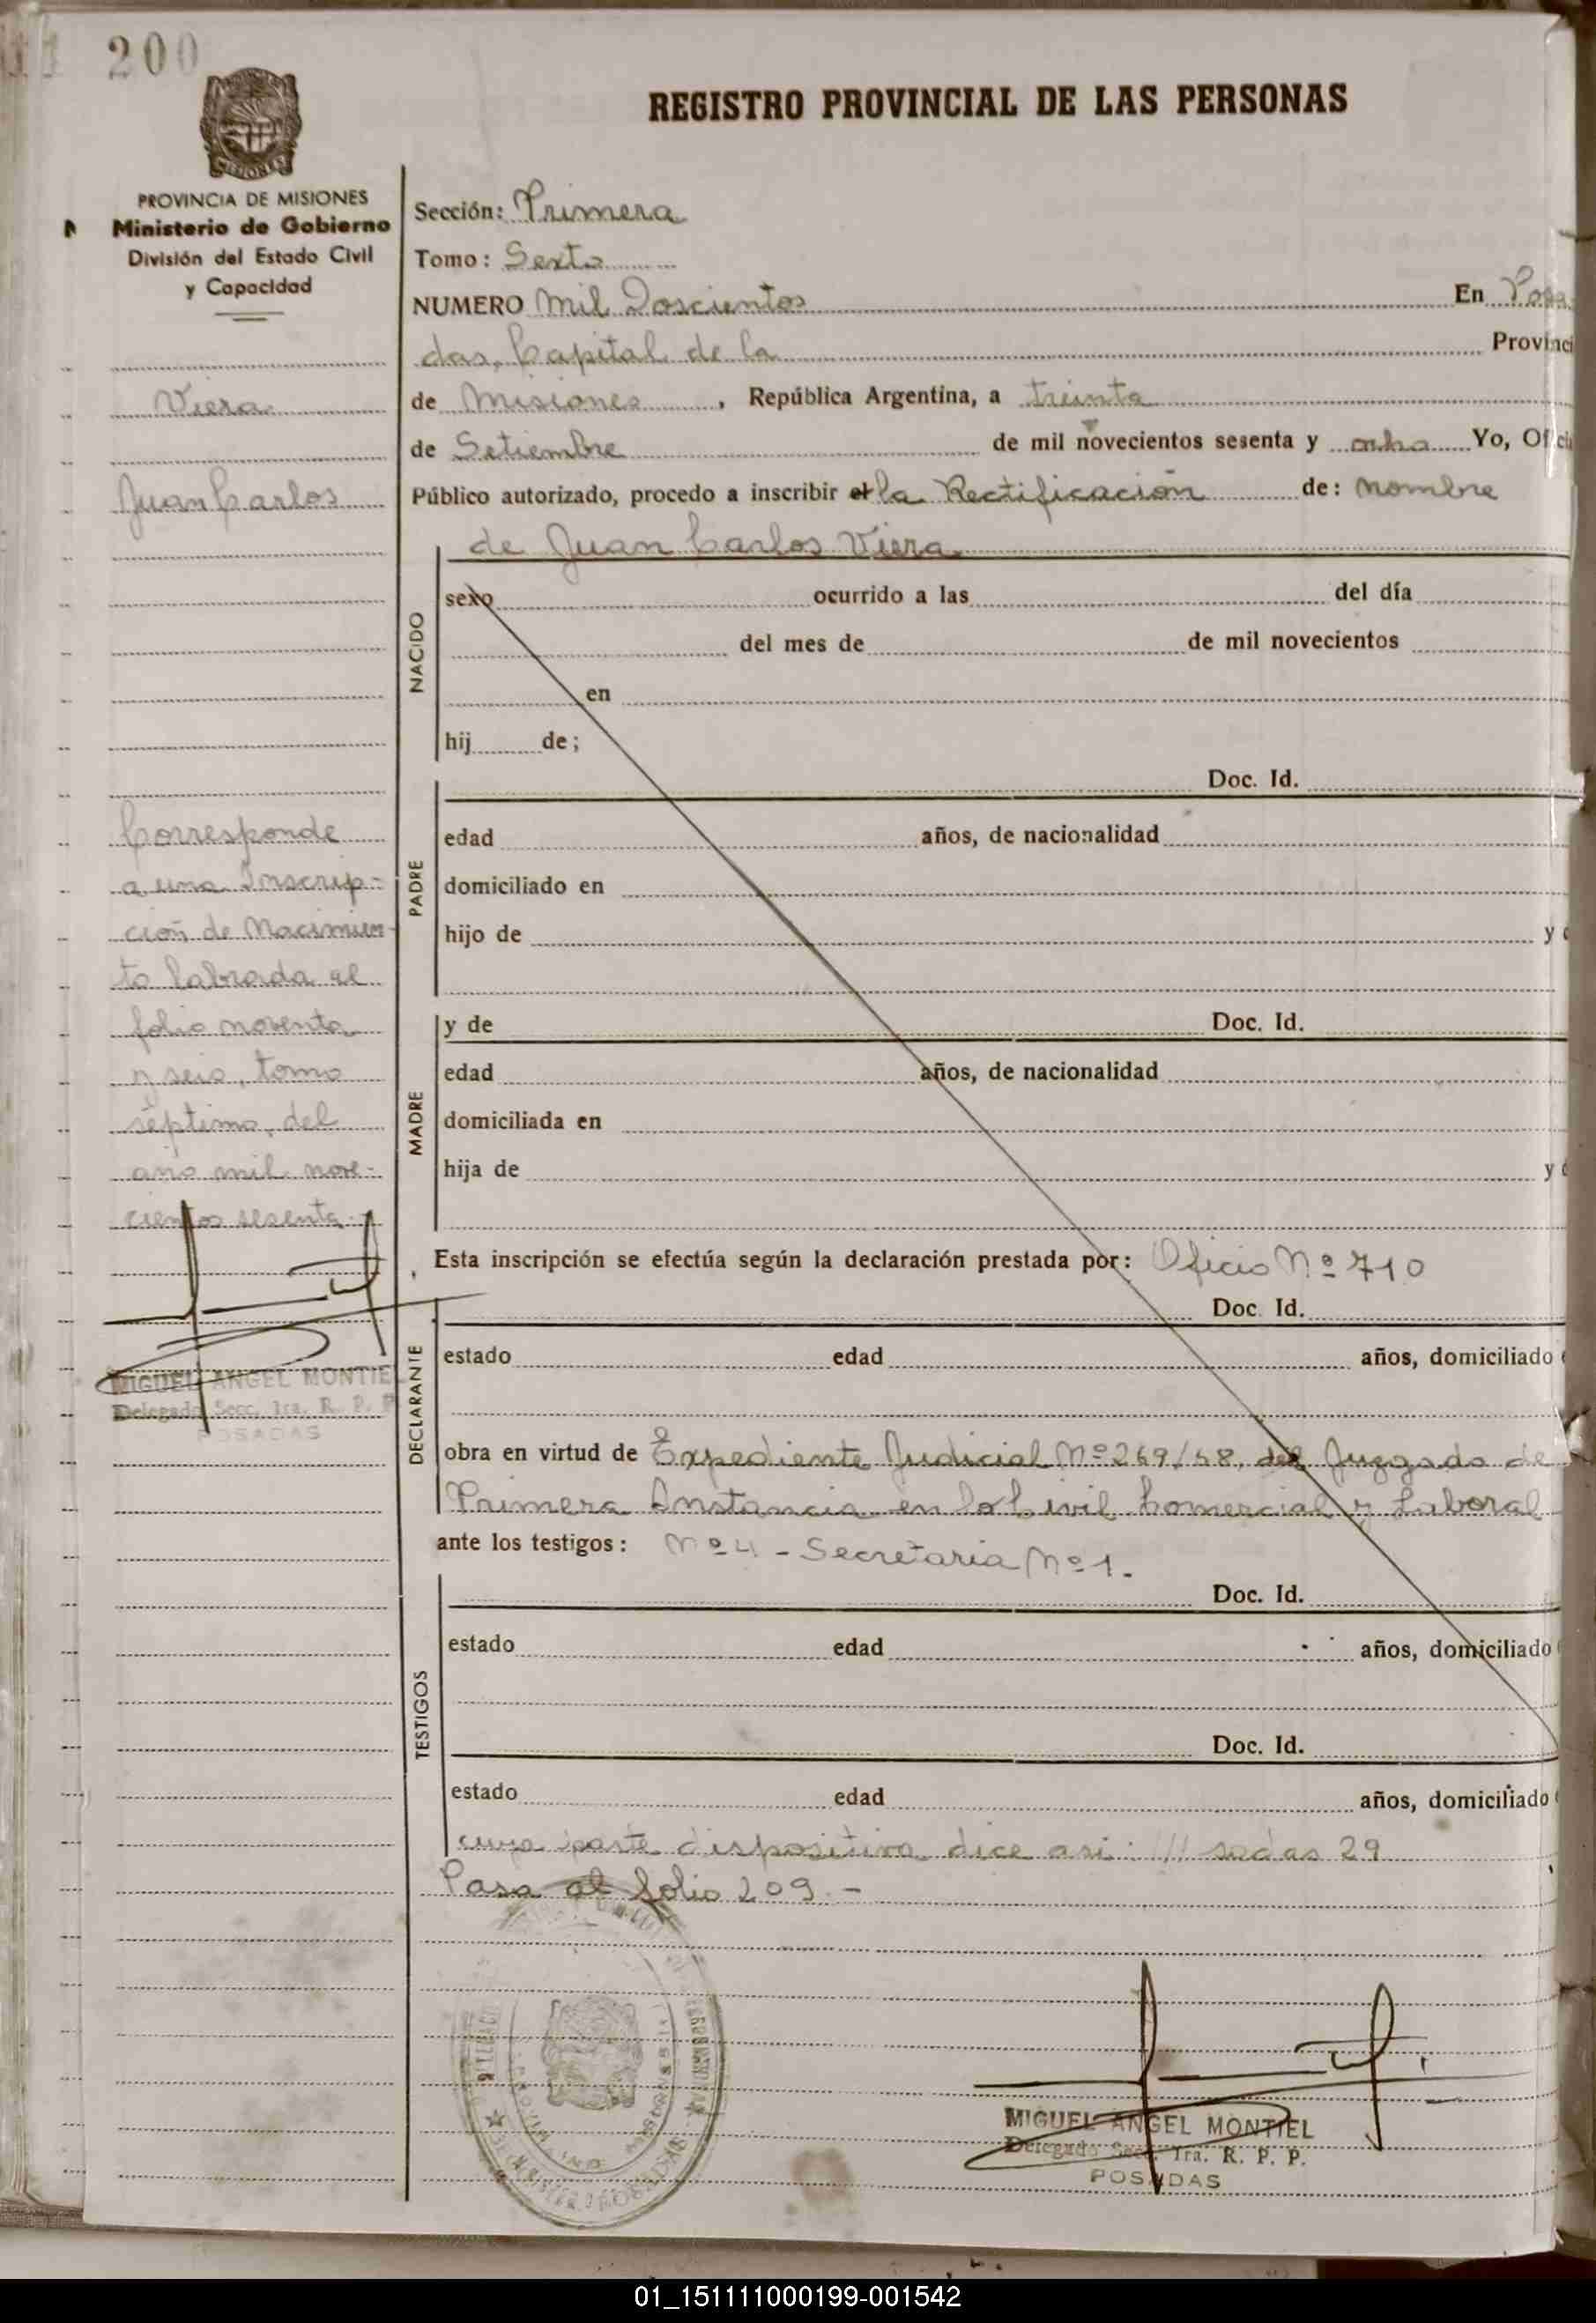 200
REGISTRO PROVINCIAL DE LAS PERSONAS
MISIONES
PROVINCIA DE MISIONES
Ministerio de Gobierno
División del Estado Civil
y Capacidad
Viera
Juan Carlos
Corresponde
a una Inscrip-
ción de Nacimien-
to labrada al
folio noventa
y seis, tomo
séptimo, del
año mil nove-
cientos sesenta.
MIGUEL ANGEL MONTIEL
Delegado Secc. 1ra. R. P. P.
POSADAS
Sección: Primera
Tomo: Sexto
NUMERO Mil Doscientos En Posa
das, Capital de la Provinci
de Misiones, República Argentina, a treinta
de Setiembre de mil novecientos sesenta y ocho Yo, Ofici
Público autorizado, procedo a inscribir el la Rectificación de: nombre
de Juan Carlos Viera
NACIDO
sexo ocurrido a las del día
del mes de de mil novecientos
en
hij de;
PADRE
Doc. Id.
edad años, de nacionalidad
domiciliado en
hijo de y
MADRE
y de Doc. Id.
edad años, de nacionalidad
domiciliada en
hija de y
Esta inscripción se efectúa según la declaración prestada por: Oficio Nº 710
DECLARANTE
Doc. Id.
estado edad años, domiciliado
obra en virtud de Expediente Judicial Nº 269/68, del Juzgado de
Primera Instancia en lo Civil Comercial y Laboral
ante los testigos: Nº 4 - Secretaria Nº 1.
TESTIGOS
Doc. Id.
estado edad años, domiciliado
Doc. Id.
estado edad años, domiciliado
cuya parte dispositiva dice asi: /// sadas 29
Pasa al folio 209.-
MIGUEL ANGEL MONTIEL
Delegado Secc. 1ra. R. P. P.
POSADAS
01_151111000199-001542